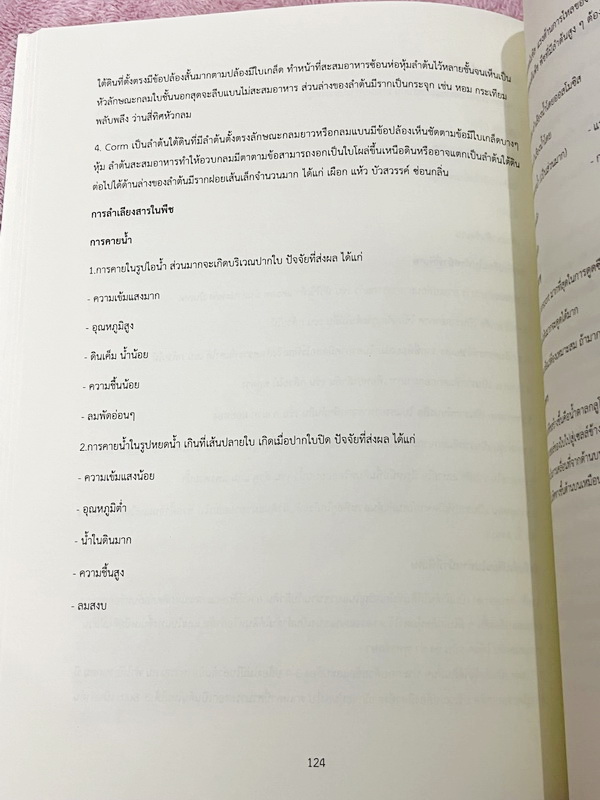 ใต้ดินที่ตั้งตรงมีข้อปล้องสั้นมากตามปล้องมีใบเกล็ด ทำหน้าที่สะสมอาหารซ้อนห่อหุ้มลำต้นไว้หลายชั้นจนเห็นเป็น
หัวลักษณะกลมใบชั้นนอกสุดจะลีบแบนไม่สะสมอาหาร ส่วนล่างของลำต้นมีรากเป็นกระจุก เช่น หอม กระเทียม
พลับพลึง ว่านสี่ทิศหัวกลม
4. Corm เป็นลำต้นใต้ดินที่มีลำต้นตั้งตรงลักษณะกลมยาวหรือกลมแบนมีข้อปล้องเห็นชัดตามข้อมีใบเกล็ดบางๆ
หุ้ม ลำต้นสะสมอาหารทำให้อวบกลมมีตาตามข้อสามารถงอกเป็นใบโผล่ขึ้นเหนือดินหรืออาจแตกเป็นลำต้นใต้ดิน
ต่อไปได้ด้านล่างของลำต้นมีรากฝอยเส้นเล็กจำนวนมาก ได้แก่ เผือก แห้ว บัวสวรรค์ ซ่อนกลิ่น
การลำเลียงสารในพืช
การคายน้ำ
1.การคายในรูปไอน้ำ ส่วนมากจะเกิดบริเวณปากใบ ปัจจัยที่ส่งผล ได้แก่
- ความเข้มแสงมาก
- อุณหภูมิสูง
- ดินเค็ม น้ำน้อย
- ความชื้นน้อย
- ลมพัดอ่อนๆ
2.การคายน้ำในรูปหยดน้ำ เกินที่เส้นปลายใบ เกิดเมื่อปากใบปิด ปัจจัยที่ส่งผล ได้แก่
- ความเข้มแสงน้อย
- อุณหภูมิต่ำ
- น้ำในดินมาก
- ความชื้นสูง
- ลมสงบ
124